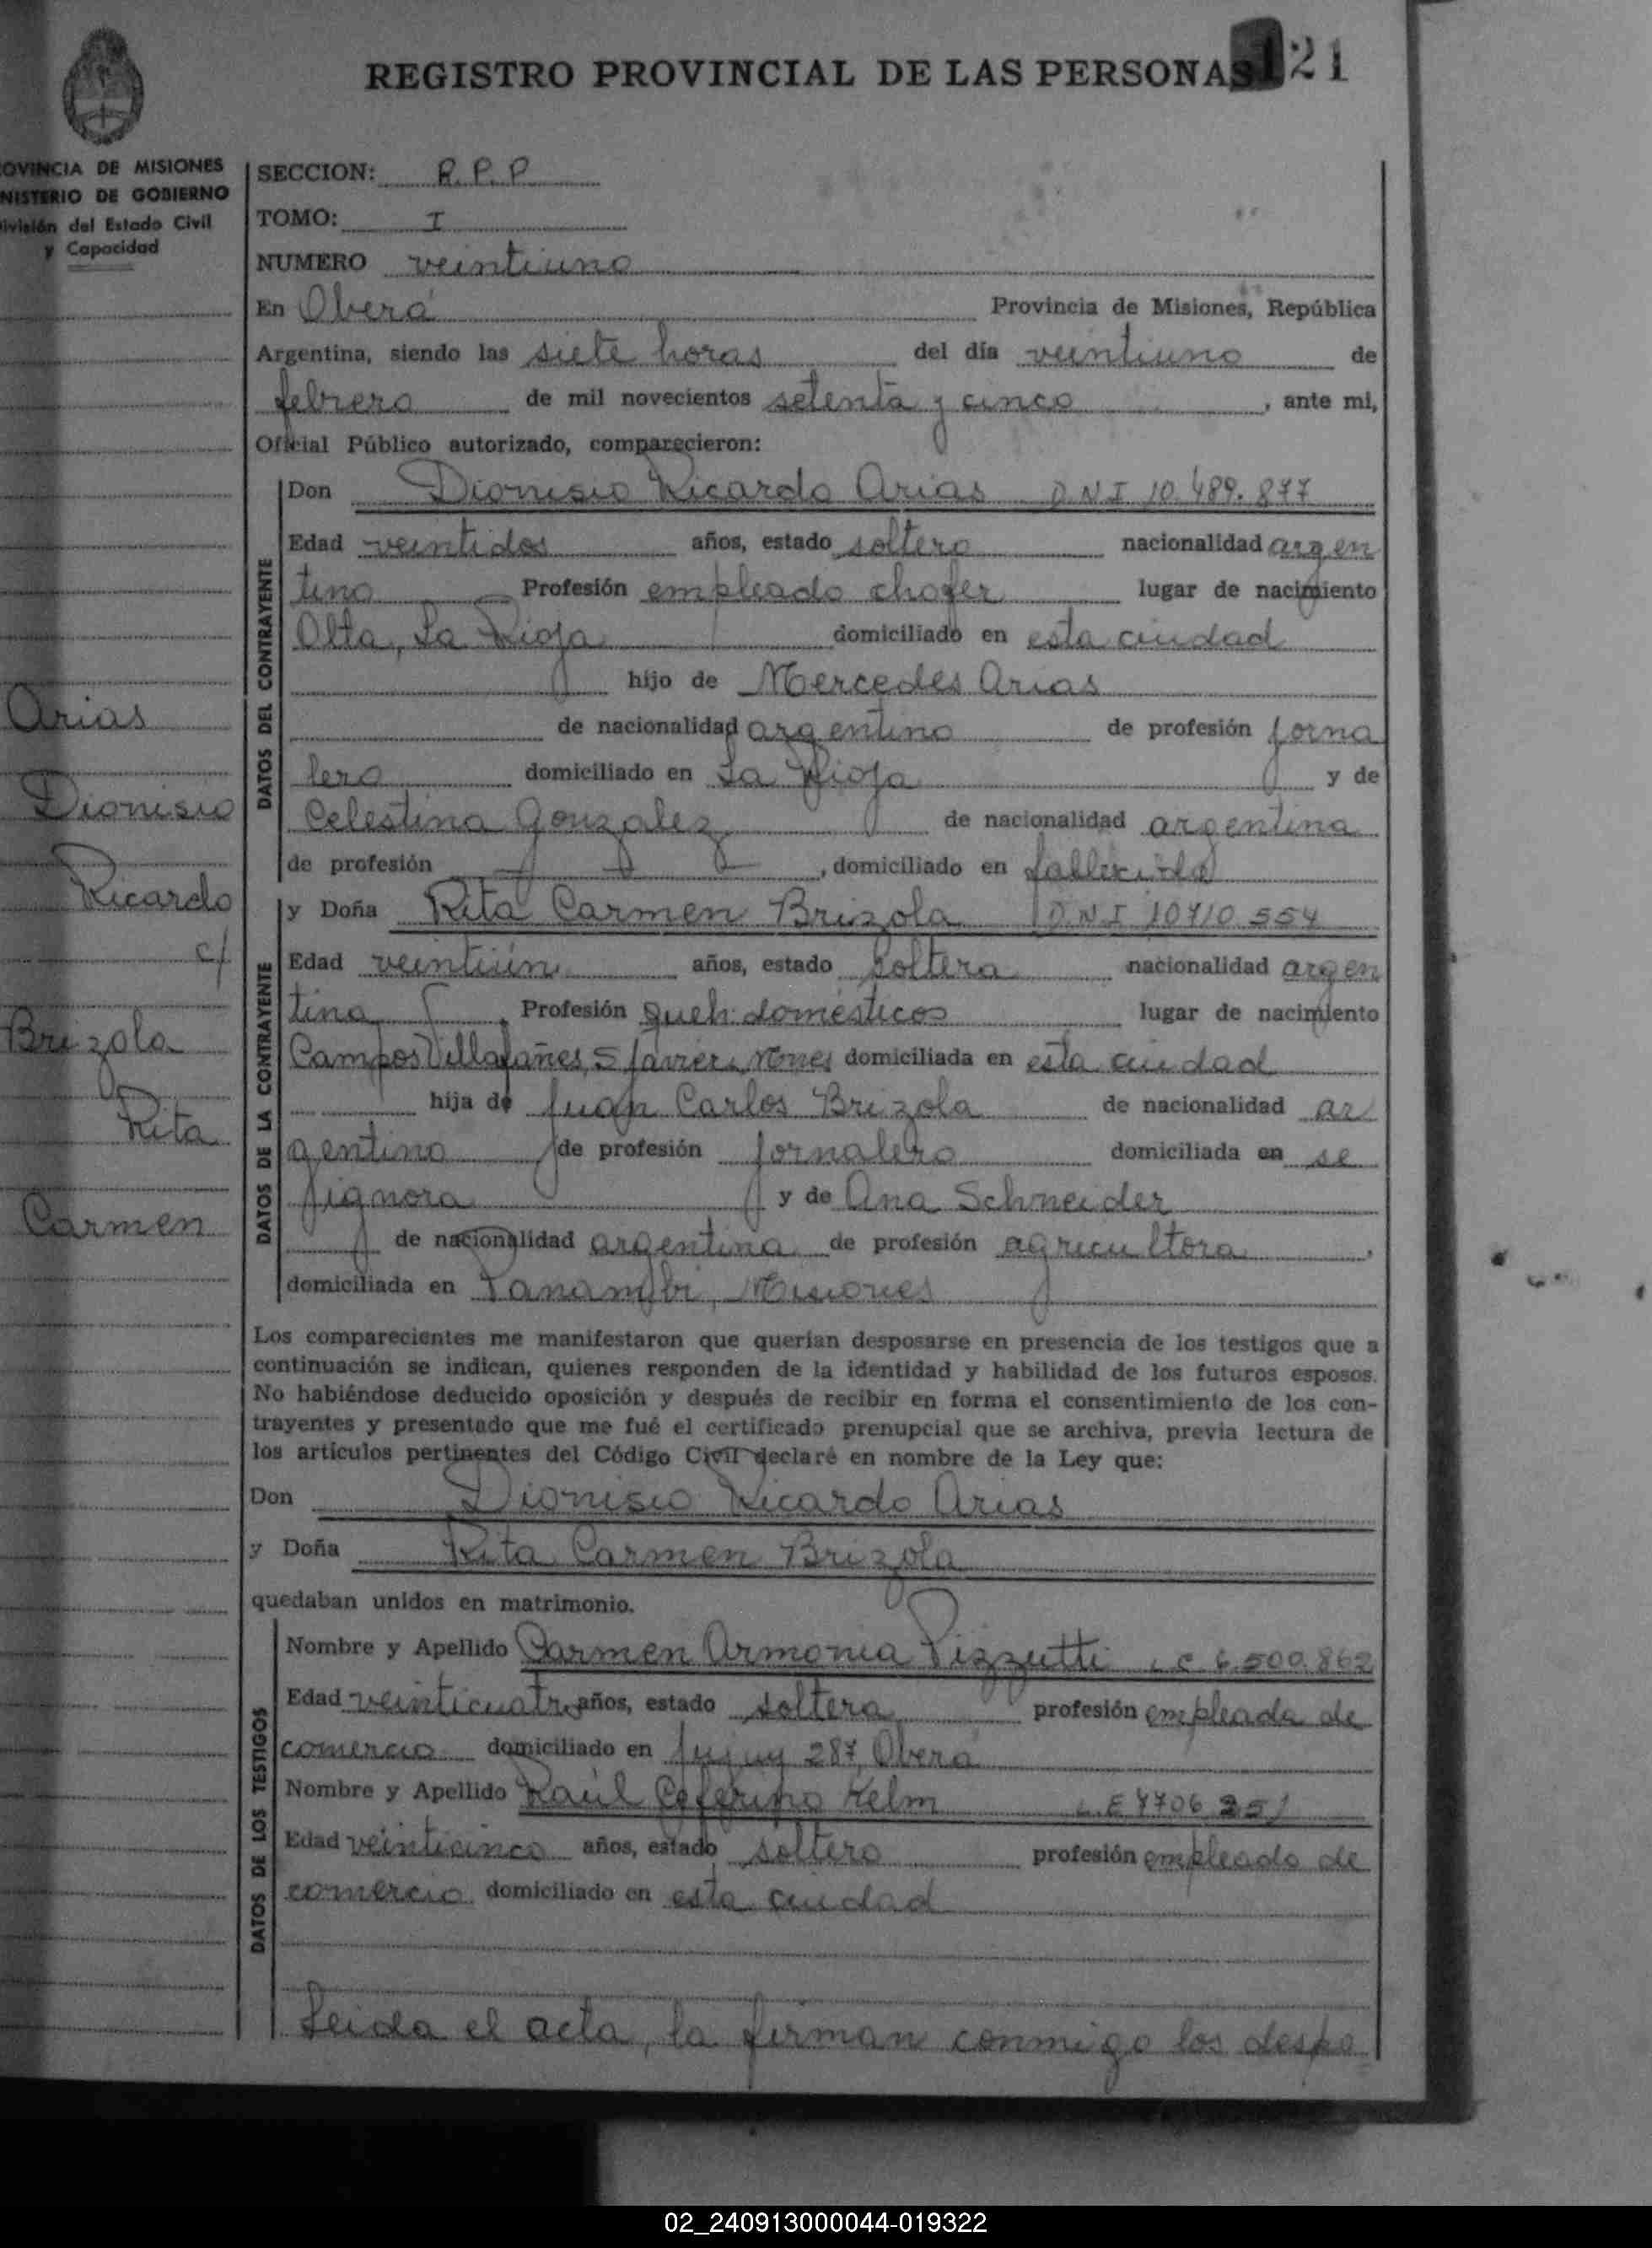 REGISTRO PROVINCIAL DE LAS PERSONAS 121
OVINCIA DE MISIONES
NISTERIO DE GOBIERNO
ivisión del Estado Civil
y Capacidad
SECCION: R.P.P
TOMO: I
NUMERO veintiuno
En Oberá Provincia de Misiones, República
Argentina, siendo las siete horas del día veintiuno de
febrero de mil novecientos setenta y cinco, ante mi,
Oficial Público autorizado, comparecieron:
DATOS DEL CONTRAYENTE
Don Dionisio Ricardo Arias D.N.I 10.489.877
Edad veintidos años, estado soltero nacionalidad argen
tino Profesión empleado chofer lugar de nacimiento
Olta, La Rioja domiciliado en esta ciudad
hijo de Mercedes Arias
de nacionalidad argentino de profesión jorna
lero domiciliado en La Rioja y de
Celestina Gonzalez de nacionalidad argentina
de profesión , domiciliado en fallecida
DATOS DE LA CONTRAYENTE
y Doña Rita Carmen Brizola D.N.I 10410.554
Edad veintiún años, estado soltera nacionalidad argen
tina Profesión queh. domésticos lugar de nacimiento
Campos Villafañes, S Javier, Mnes domiciliada en esta ciudad
hija de Juan Carlos Brizola de nacionalidad ar
gentino de profesión jornalero domiciliada en se
jignora y de Ana Schneider
de nacionalidad argentina de profesión agricultora,
domiciliada en Panambi, Misiones
Arias
Dionisio
Ricardo
c/
Brizola
Rita
Carmen
Los comparecientes me manifestaron que querían desposarse en presencia de los testigos que a
continuación se indican, quienes responden de la identidad y habilidad de los futuros esposos.
No habiéndose deducido oposición y después de recibir en forma el consentimiento de los con-
trayentes y presentado que me fué el certificado prenupcial que se archiva, previa lectura de
los artículos pertinentes del Código Civil declaré en nombre de la Ley que:
Don Dionisio Ricardo Arias
y Doña Rita Carmen Brizola
quedaban unidos en matrimonio.
DATOS DE LOS TESTIGOS
Nombre y Apellido Carmen Armonia Pizzutti L.C. 6.500.862
Edad veinticuatro años, estado soltera profesión empleada de
comercio domiciliado en Jujuy 287, Oberá
Nombre y Apellido Raúl Ceferino Kelm L.E 7706 251
Edad veinticinco años, estado soltero profesión empleado de
comercio domiciliado en esta ciudad
Leida el acta, la firman conmigo los despo
02_240913000044-019322